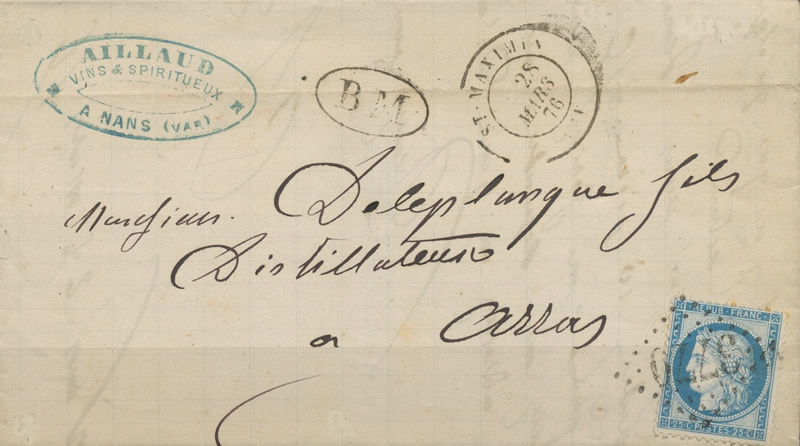 AILLAUD
VINS & SPIRITUEUX
A NANS (VAR)
BM
ST-MAXIMIN
28
MARS
76
VAR
Monsieur. Deleplanque fils
Distillateurs
a Arras
REPUB. FRANC.
25 C POSTES 25 C